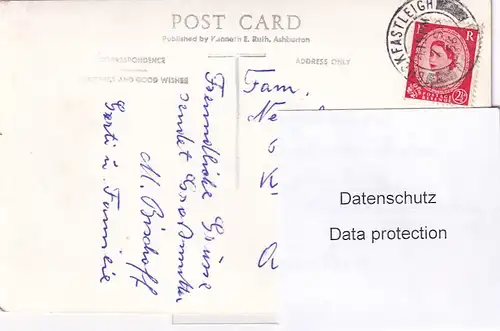 POST CARD
Published by Kenneth E. Ruth, Ashburton
CORRESPONDENCE
AND GOOD WISHES
ADDRESS ONLY
KFASTLEIGH
E R
POSTAGE REVENUE
2½
Freundliche Grüsse
sendet Großmutter
M. Bischoff
Gerti u. Familie
Fam.
Ne
K
A
Datenschutz
Data protection